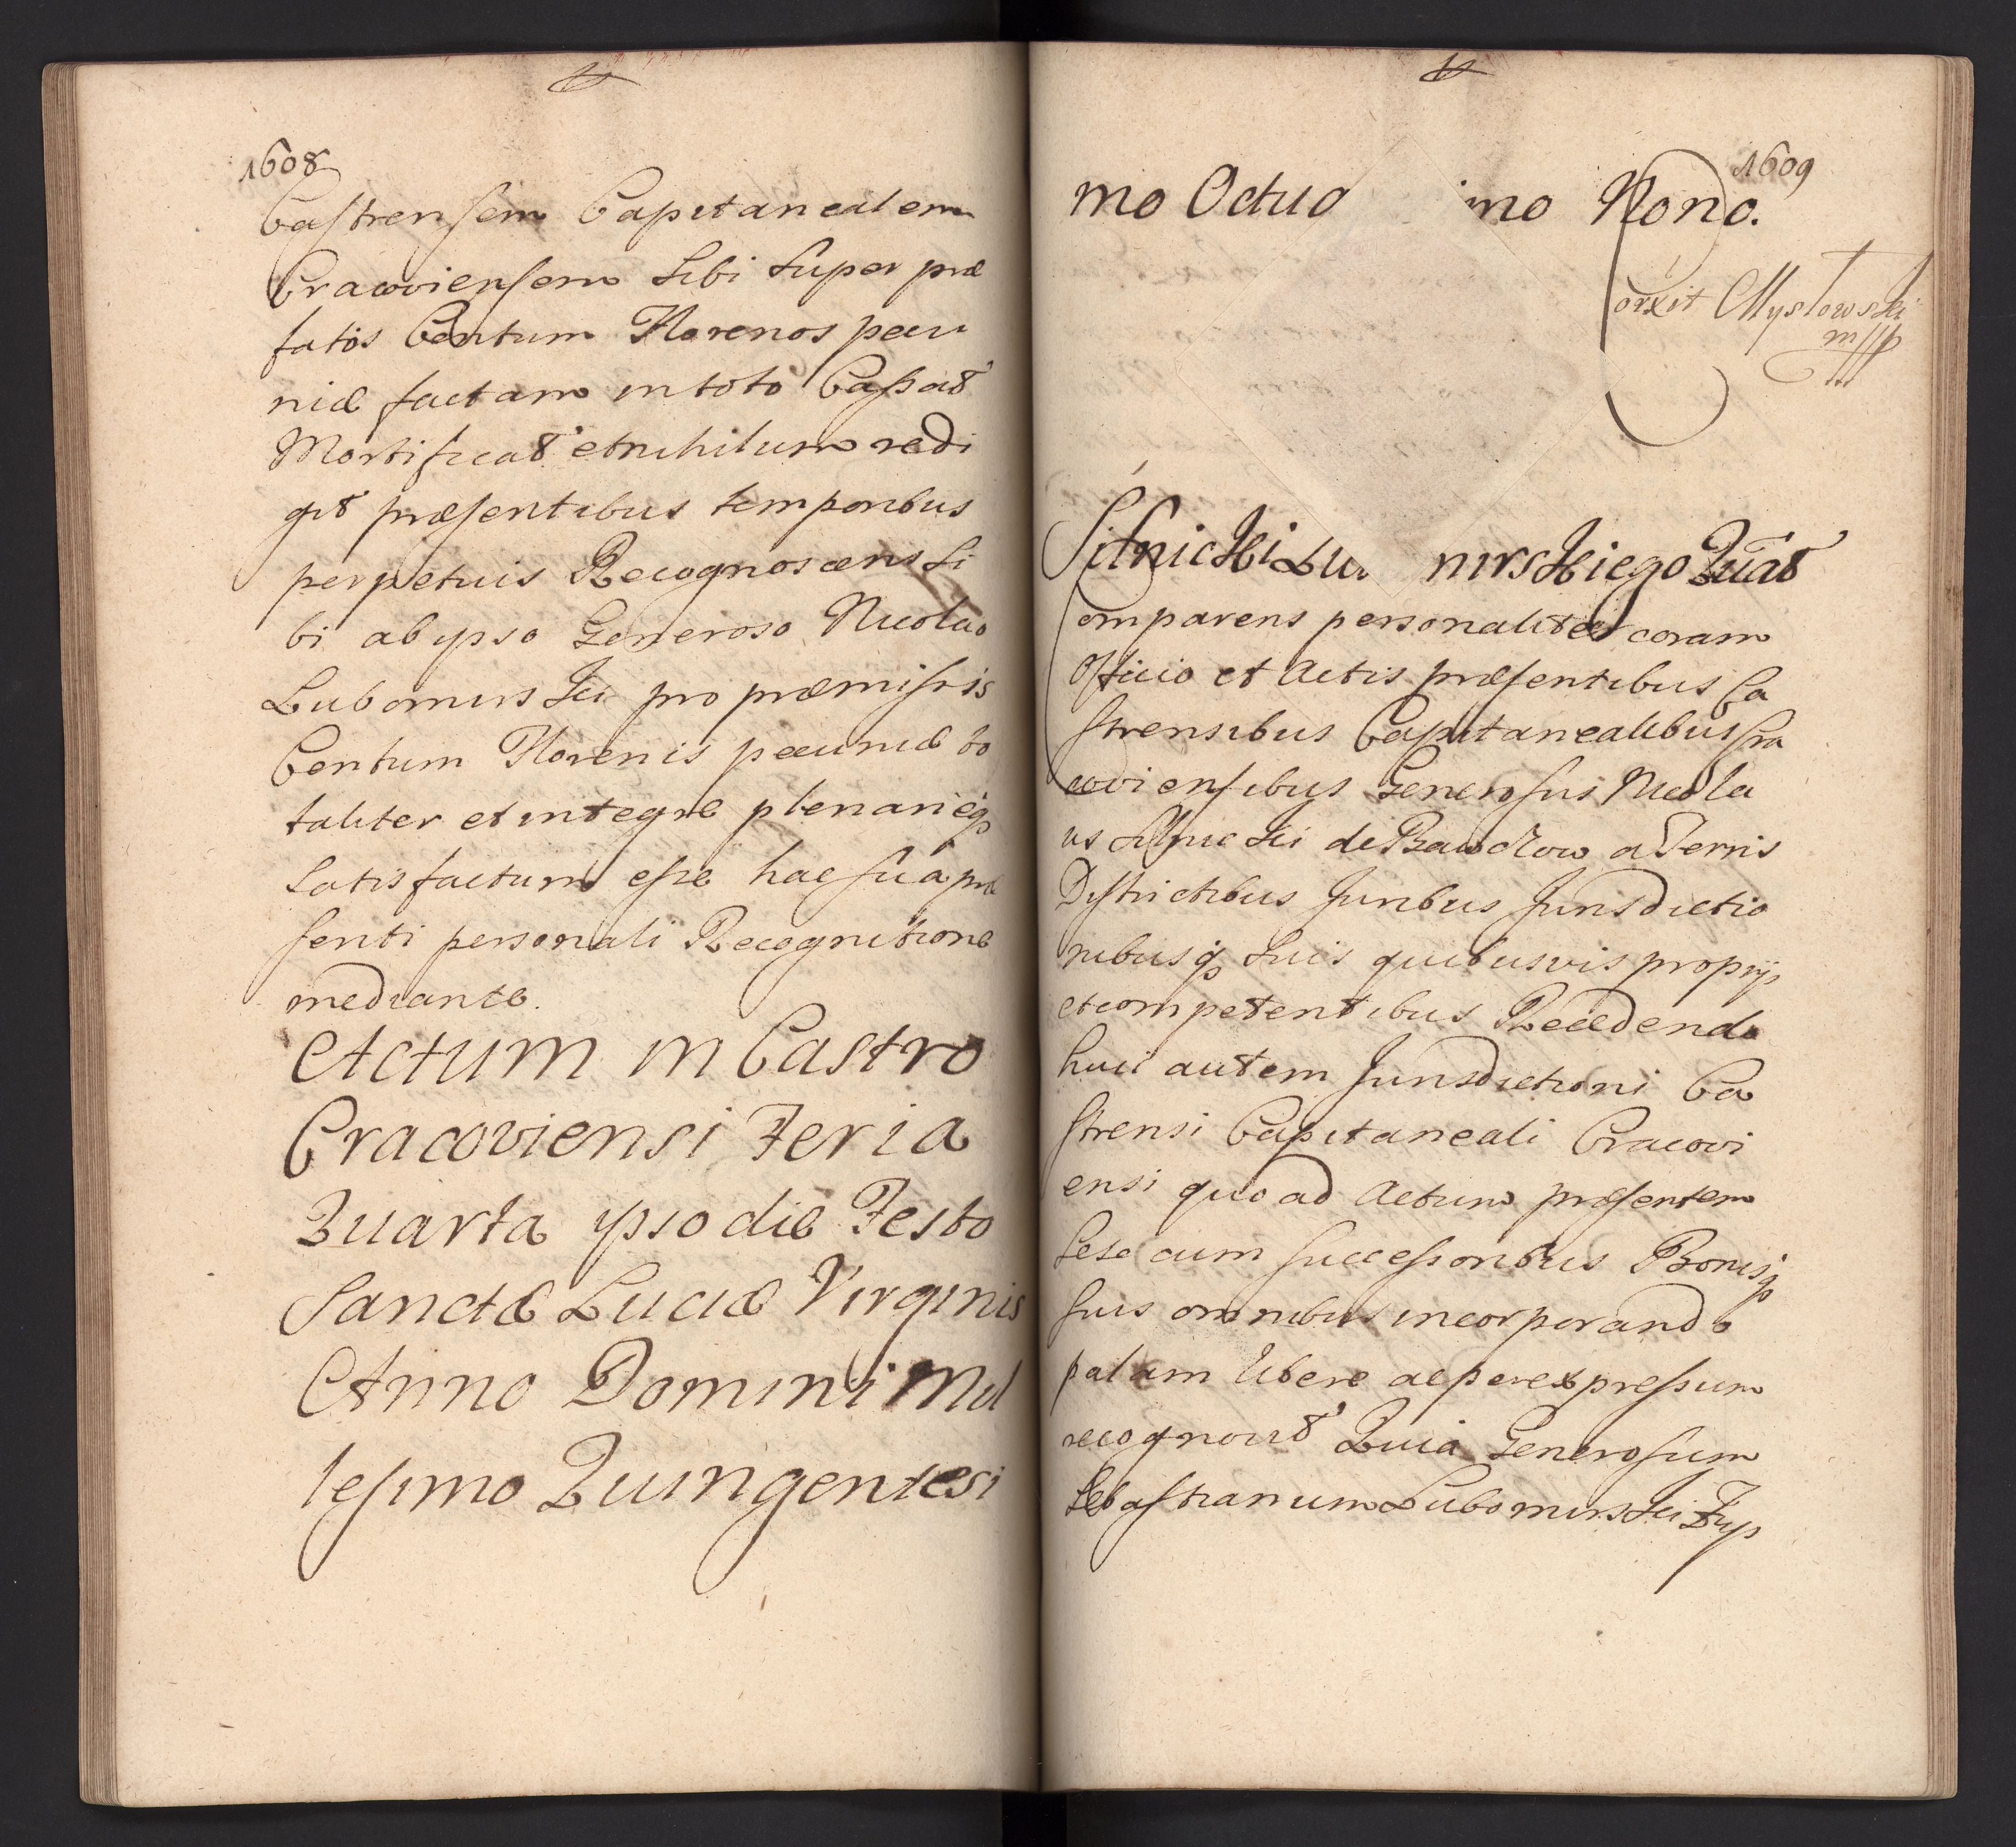 1608
Castrensem Capitanealem
Cracoviensem Sibi Super præ
fatos Centum Florenos pecu
niæ factam in toto Cassat
Mortificat et nihilum redi
git præsentibus temporibus
perpetuis Recognoscens Si
bi ab ypso Generoso Nicolao
Lubomirski pro præmissis
Centum Florenis pecuniæ to
taliter et integre plenarieq
Satisfactum esse hac sua præ
senti personali Recognitione
mediante.
Actum in Castro
Cracoviensi Feria
Quarta ypso die Festo
Sanctæ Luciæ Virginis
Anno Domini Mil
lesimo Quingentesi
1609
mo Octuo imo Nono.
Corxit Mysłowski
mpp
Silnicki Lu mirskiego Quat
Comparens personaliter coram
Officio et Actis præsentibus Ca
strensibus Capitanealibus Cra
coviensibus Generosus Nicola
us Silnicki de a Terris
Districtibus Juribus Jurisdictio
nibusq Suis quibusvis proprijs
et competentibus Recedendo
huic autem Jurisdictioni Ca
strensi Capitaneali Cracovi
ensi quo ad Actum præsentem
Sese cum successoribus Bonisq
suis omnibus incorporando
palam libere ac per expressum
recognovit Quia Generosum
Sebastianum Lubomirski Żup